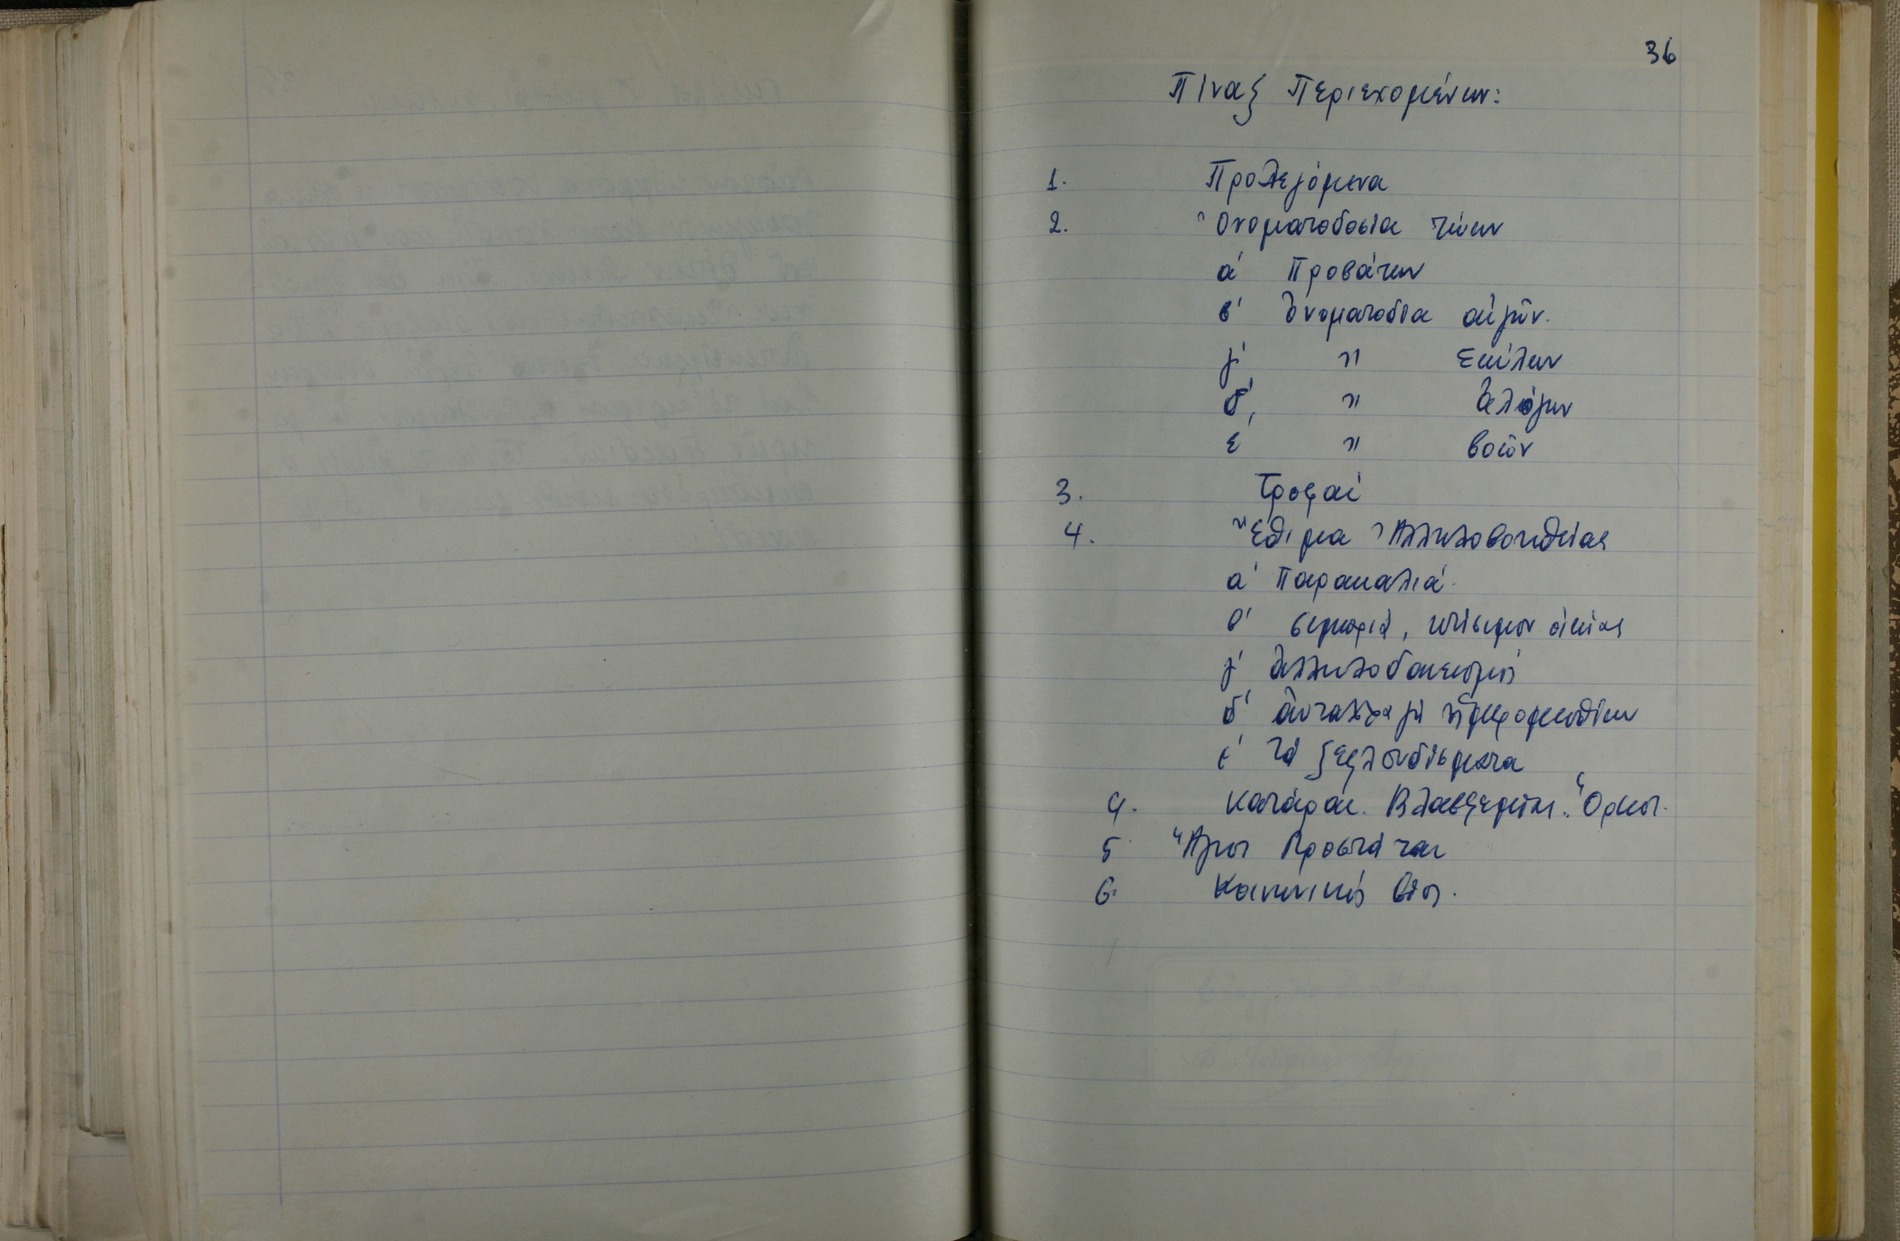 36
Πίναξ Περιεχομένων:
1. Προλεγόμενα
2. Ὀνοματοδοσία ζώων
α' Προβάτων
β' ὀνοματοδοσία αἰγῶν.
γ' " Σκύλων
δ', " ἀλόγων
ε' " βοῶν
3. Τροφαί
4. Ἔθιμα Ἀλληλοβοηθείας
α' Παρακαλιά.
β' σεμπριά, κτίσιμον οἰκίας
γ' ἀλληλοδανεισμός
δ' ἀνταλλαγή ἡμερομισθίων
ε' τά ξεφλουδίσματα
4. Κατάραι. Βλασφημίαι. Ὅρκοι.
5 Ἅγιοι Προστάται
6. Κοινωνικός βίος.